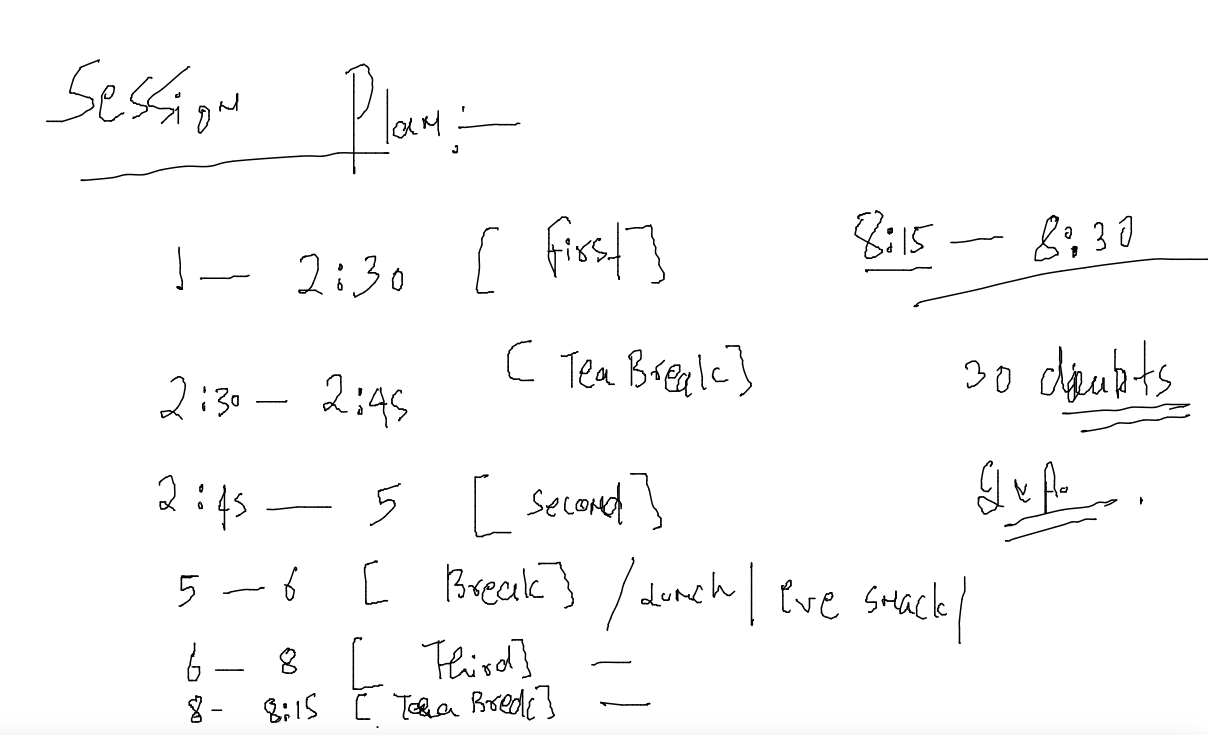 Session Plan :-
1 — 2:30 [ first ]
2:30 — 2:45 [ Tea Break ]
2:45 — 5 [ second ]
5 — 6 [ Break ] / Lunch | Eve snack /
6 — 8 [ Third ] —
8 - 8:15 [ Tea Break ] —
8:15 — 8:30
30 doubts